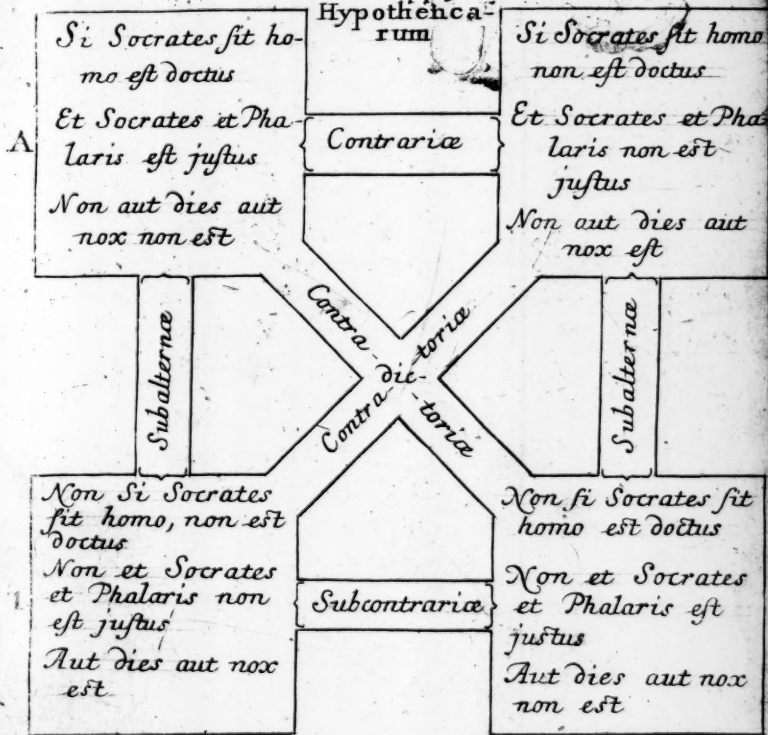 Hypothetica-
rum
Si Socrates ſit ho-
mo eſt doctus
Et Socrates et Pha-
laris eſt juſtus
Non aut dies aut
nox non est
A
Contrariæ
Si Socrates ſit homo
non eſt doctus
Et Socrates et Pha
laris non est
juſtus
Non aut dies aut
nox eſt
Subalternæ
Contra-
dic-
toriæ
Contra-
toriæ
Subalternæ
Non Si Socrates
ſit homo, non est
doctus
Non et Socrates
et Phalaris non
eſt juſtus
Aut dies aut nox
est
Subcontrariæ
Non ſi Socrates ſit
homo est doctus
Non et Socrates
et Phalaris eſt
justus
Aut dies aut nox
non est